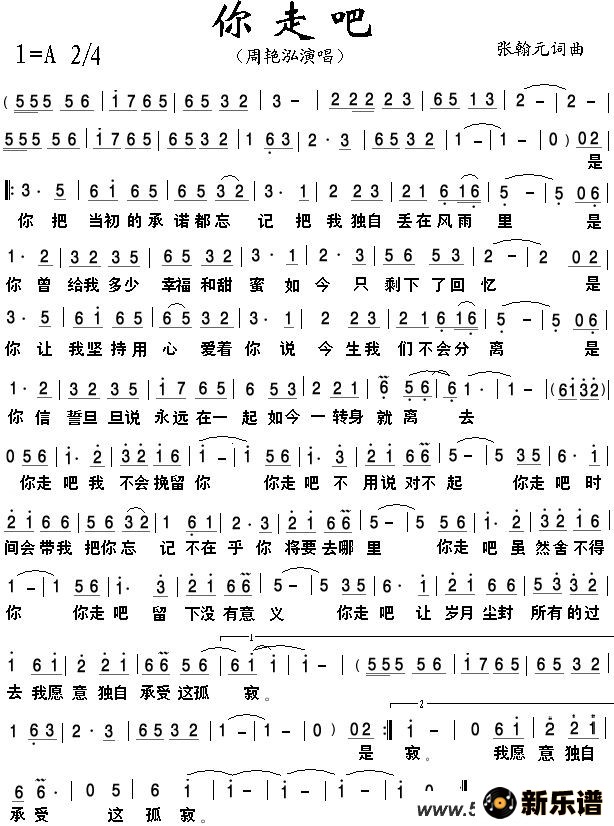 你走吧
1=A 2/4
（周艳泓演唱）
张翰元词曲
( 555 56 | 1765 | 6532 | 3 - | 2222 23 | 65 13 | 2 - |
555 56 | 1765 | 6532 | 1 63 | 2· 3 | 6532 | 1 - | 1 - | 0 ) 02 |
是
‖: 3· 5 | 61 65 | 65 32 | 3· 1 | 2· 3 | 221 | 61 16 | 5 - | 5 06 |
你 把 当初的承诺都忘 记 把 我 独自 丢在风雨 里 是
1· 2 | 32 35 | 65 32 | 3· 1 | 2· 3 | 56 53 | 2 - | 2 02 |
你 曾 给我多少 幸福和甜 蜜 如 今 只 剩下了回忆 是
3· 5 | 61 65 | 65 32 | 3· 1 | 2· 3 | 2 1 6 16 | 5 - | 5 06 |
你 让 我坚持用心 爱着你 说 今生我 们不会分 离 是
1· 2 | 32 35 | 1765 | 6 03 | 53 | 221 | 6 56 | 6 1· | 1 - | (6132) |
你 信 誓旦旦说 永远在一 起 如今一转身 就 离 去
0 56 | 1· 2 | 32 16 | 2 - | 2 56 | 1· 3 | 21 66 | 5 - | 5 56 | 1· 3 |
你走吧我 不会挽留你 你走吧不 用说对不起 你走吧时
21 16 | 56 32 | 1 61 | 2· 3 | 21 66 | 5 - | 5 56 | 1· 2 | 32 16 |
间会带我 把你忘 记 不在乎你 将要去哪里 你走吧虽然舍不得
1 - | 1 56 | 1· 3 | 21 66 | 5 - | 5 56 | 1· 3 | 21 66 | 56 32 |
你 你走吧 留 下没有意 义 你走吧 让 岁月尘封 所有的过
1 61 | 2 21 | 66 56 | 61 1 | 1 - | ( 555 56 | 1765 | 6532 |
去 我愿意 独自 承受这孤 寂。
1 63 | 2· 3 | 6532 | 1 - | 1 0 ) | 02 :‖ 1 - | 0 61 | 2 21 |
是 寂。 我愿意 独自
66 | 0 5 | 56 | 1 - | 1 - | 1 - | 1
承受 这 孤 寂。
www.5
新乐谱